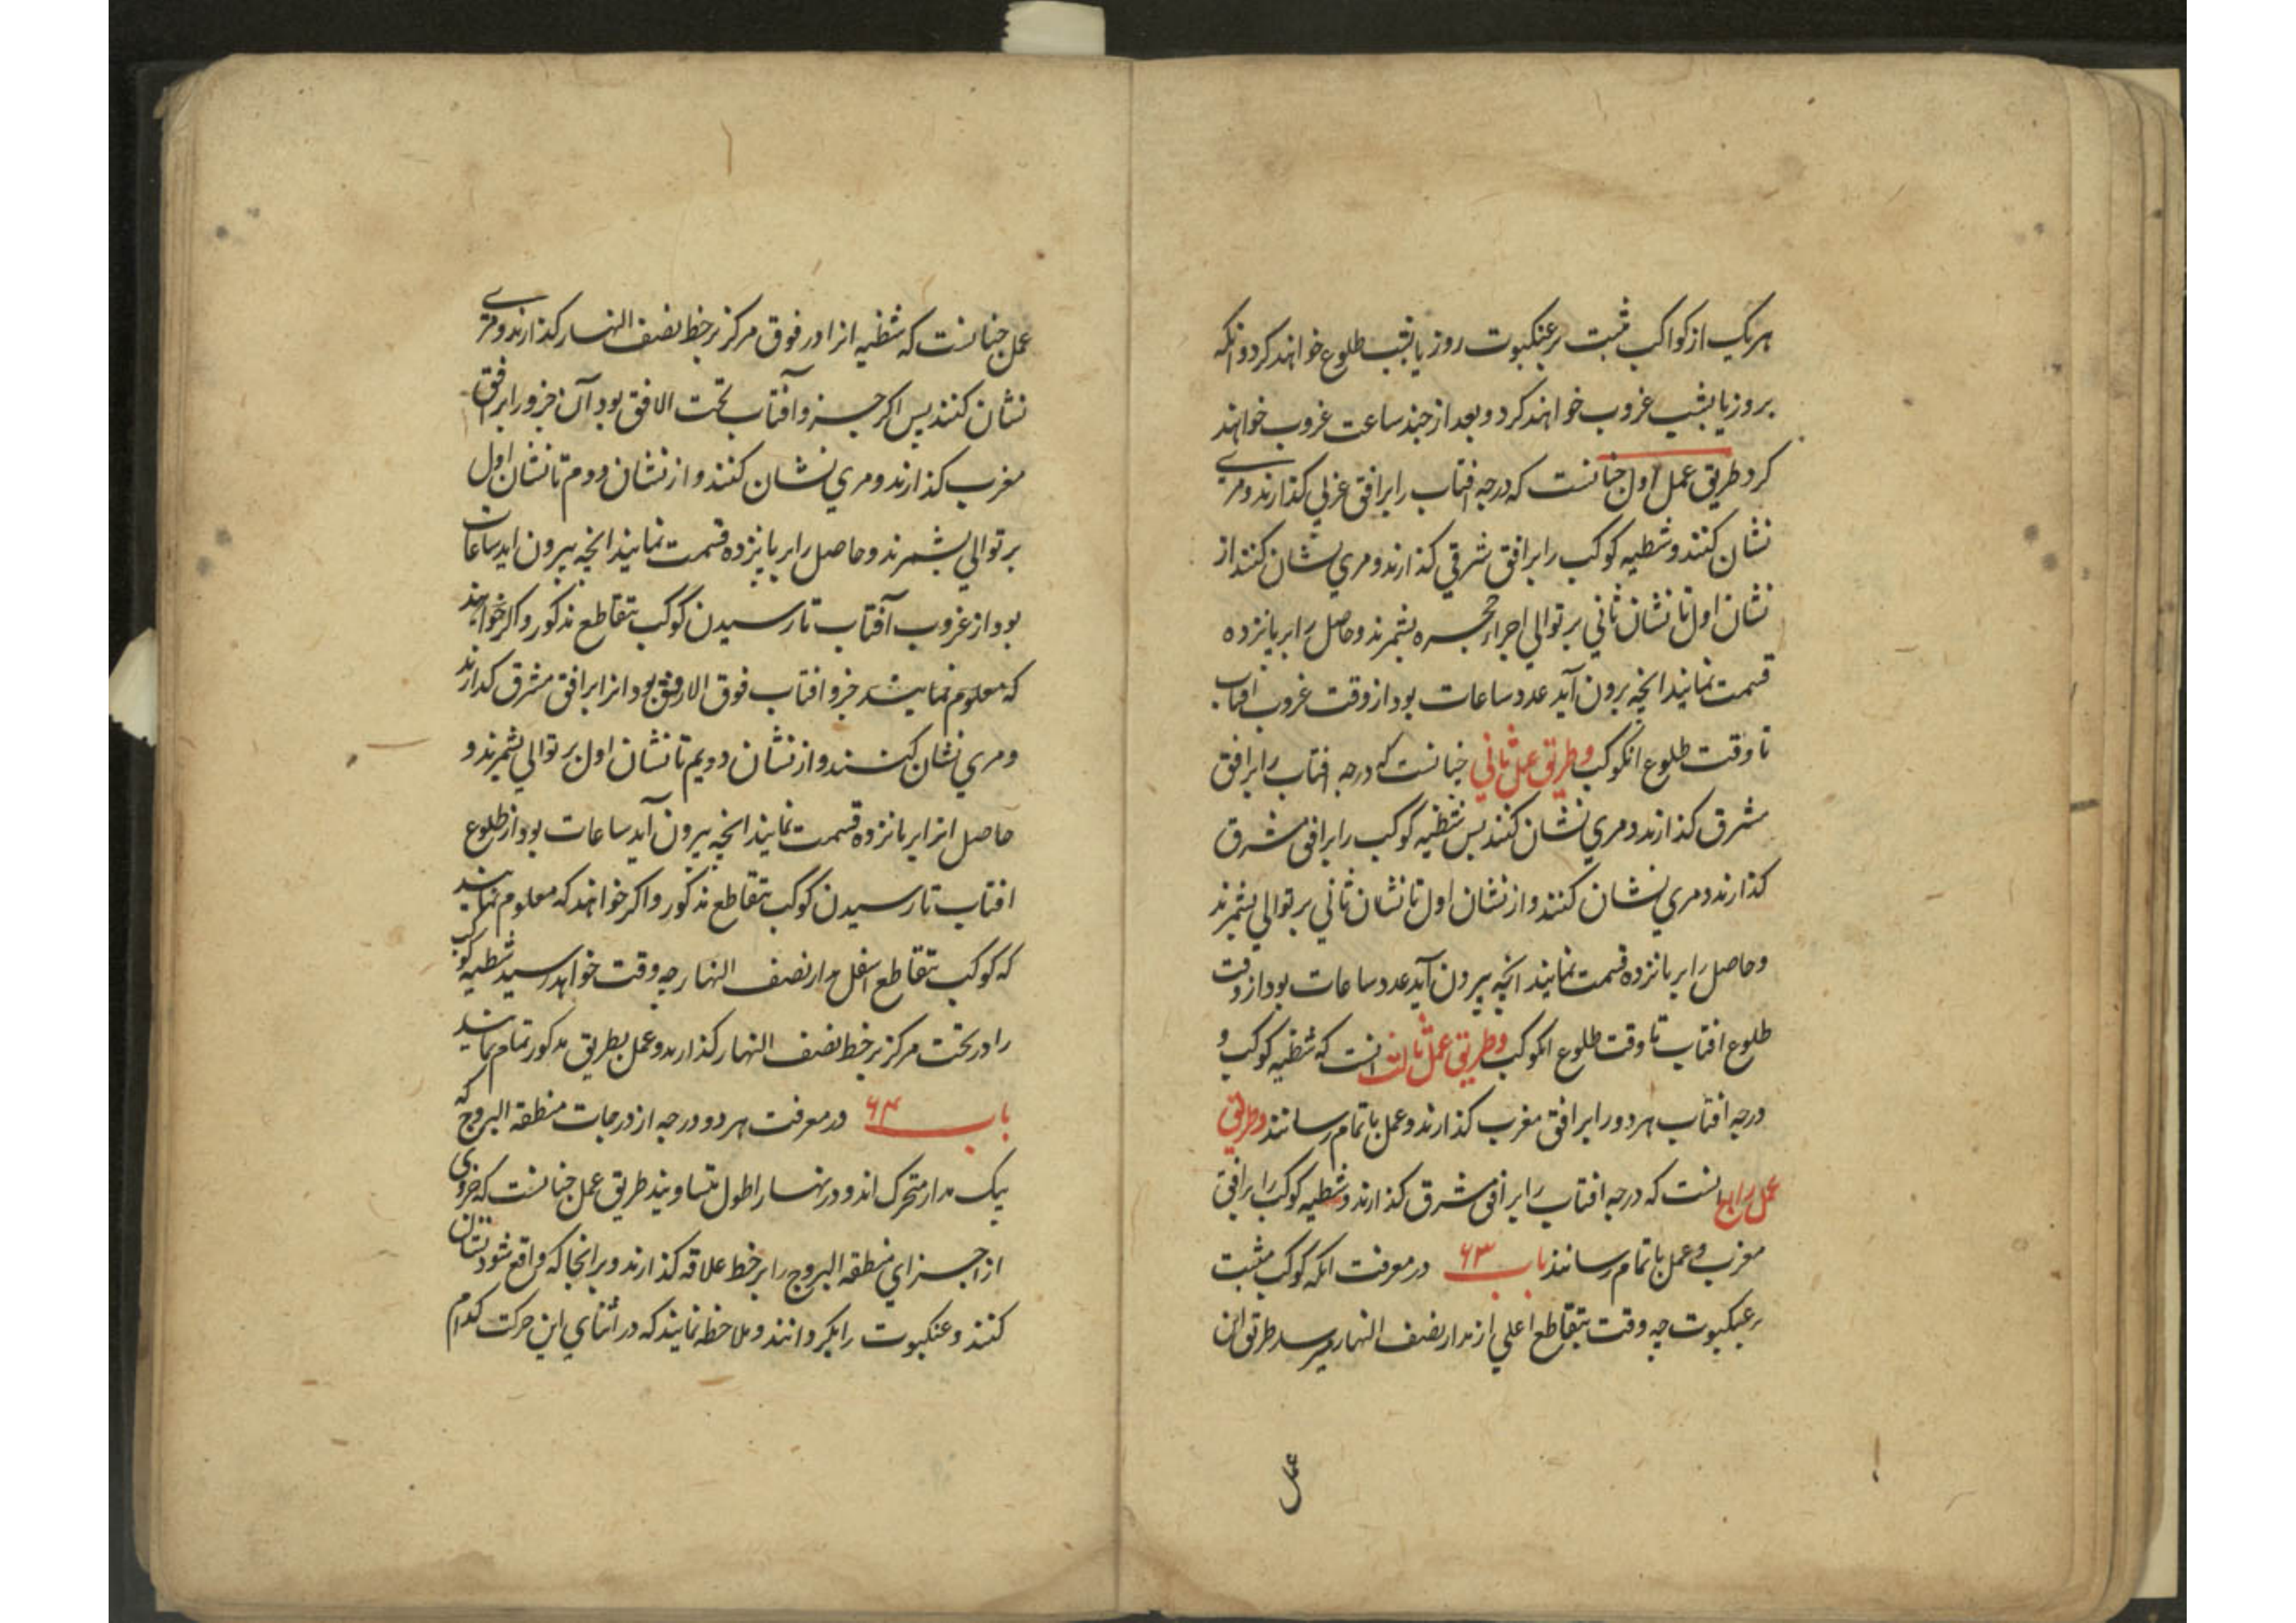 هریک از کواکب مثبت بر عنکبوت روز یا بشب طلوع خواهند کرد و انکه
بروز یا بشب غروب خواهند کرد و بعد از چند ساعت غروب خواهند
کرد طریق عمل اول چنانست که درجه افتاب را بر افق غربی کذارند و مری
نشان کنند و شظیه کوکب را بر افق شرقی کذارند و مری نشان کنند از
نشان اول تا نشان ثانی بر توالی اجزاء حجره بشمرند و حاصل را بر پانزده
قسمت نمایند انچه برون آید عدد ساعات بود از وقت غروب افتاب
تا وقت طلوع انکوکب وطریق عمل ثانی چنانست که درجه افتاب را بر افق
مشرق کذارند و مری نشان کنند پس شظیه کوکب را بر افق مشرق
کذارند و مری نشان کنند و از نشان اول تا نشان ثانی بر توالی بشمرند
وحاصل را بر پانزده قسمت نمایند انچه بیرون آید عدد ساعات بود از وقت
طلوع افتاب تا وقت طلوع انکوکب وطریق عمل ثالث انست که شظیه کوکب و
درجه افتاب هر دو را بر افق مغرب کذارند و عمل باتمام رسانند وطریق
عمل رابع انست که درجه افتاب را بر افق مشرق کذارند و شظیه کوکب را بر افق
مغرب و عمل باتمام رسانند باب ۶۳ در معرفت انکه کوکب مثبت
بر عنکبوت چه وقت بتقاطع اعلی از مدار نصف النهار میرسد طریق این
عمل
عمل چنانست که شظیه انرا در فوق مرکز بر خط نصف النهار کذارند و مری
نشان کنند پس اکر جزو آفتاب تحت الافق بود آن جزو را بر افق
مغرب کذارند و مری نشان کنند و از نشان دوم تا نشان اول
بر توالی بشمرند و حاصل را بر پانزده قسمت نمایند انچه بیرون اید ساعات
بود از غروب آفتاب تا رسیدن کوکب بتقاطع مذکور و اکر خواهند
که معلوم نمایند جزو افتاب فوق الارض بود انرا بر افق مشرق کذارند
و مری نشان کنند و از نشان دویم تا نشان اول بر توالی بشمرند و
حاصل انرا بر پانزده قسمت نمایند انچه بیرون آید ساعات بود از طلوع
افتاب تا رسیدن کوکب بتقاطع مذکور و اکر خواهند که معلوم نمایند
که کوکب بتقاطع اسفل مدار نصف النهار چه وقت خواهد رسید شظیه کوکب
را در تحت مرکز بر خط نصف النهار کذارند و عمل بطریق مذکور تمام نمایند
باب ۶۴ در معرفت هر دو درجه از درجات منطقة البروج که
بیک مدار متحرک اند و در نهار اطول متساویند طریق عمل چنانست که جزوی
از اجزای منطقة البروج را بر خط علاقه کذارند و بر انجا که واقع شود نشان
کنند و عنکبوت را بکردانند و ملاحظه نمایند که در اثنای این حرکت کدام